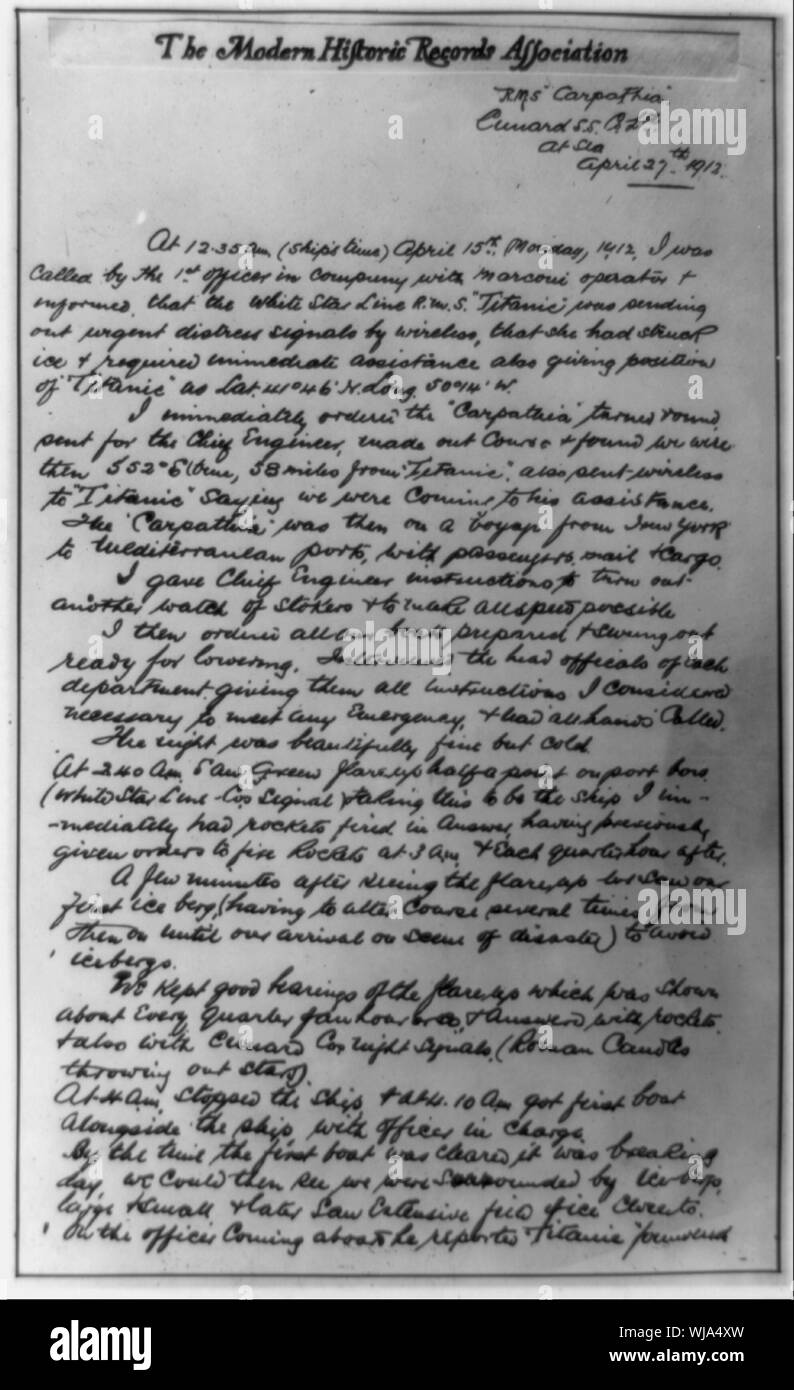 The Modern Historic Records Association
R.M.S "Carpathia"
Cunard S.S. Co Ld.
At Sea
April 27th 1912.
At 12.35 am (ship's time) April 15th, Monday, 1912, I was
called by the 1st officer in company with Marconi operator +
informed, that the White Star Line R.M.S. "Titanic" was sending
out urgent distress signals by wireless, that she had struck
ice + required immediate assistance also giving position
of "Titanic" as Lat. 41°46' N. Long. 50°14' W.
I immediately ordered the "Carpathia" turned round,
sent for the Chief Engineer, made out Course + found we were
then S 52° E (true, 58 miles from "Titanic", also sent wireless
to "Titanic" saying we were coming to his assistance.
The "Carpathia" was then on a voyage from New York
to Mediterranean ports, with passengers, mail + Cargo.
I gave Chief Engineer instructions to turn out
another watch of stokers + to make all speed possible
I then ordered all our boats prepared + swung out
ready for lowering. the head officials of each
department giving them all instructions I considered
necessary to meet any Emergency, + had "all hands" Called.
The night was beautifully fine but cold
At 2.40 Am Saw Green flareup half a point on port bow
(White Star Line Cos Signal) + taking this to be the ship I im-
-mediately had rockets fired in answer, having previously
given orders to fire Rockets at 3 Am, + Each quarter hour after.
A few minutes after seeing the flareup we saw our
first ice berg, (having to alter Course several times from
then on until our arrival on scene of disaster) to avoid
icebergs.
We kept good bearings of the flareup which was shown
about Every quarter of an hour or so, + Answered with rockets.
+ also with Cunard Cos night signals, (Roman Candles
throwing out stars).
At 4 Am, stopped the ship, + at 4.10 Am got first boat
alongside the ship with officer in charge.
By the time the first boat was cleared it was breaking
day, we could then see we were surrounded by icebergs,
large + small + later saw Extensive field of ice
On the officer Coming aboard he reported "Titanic" foundered
alamy
Image ID: WJA4XW
www.alamy.com